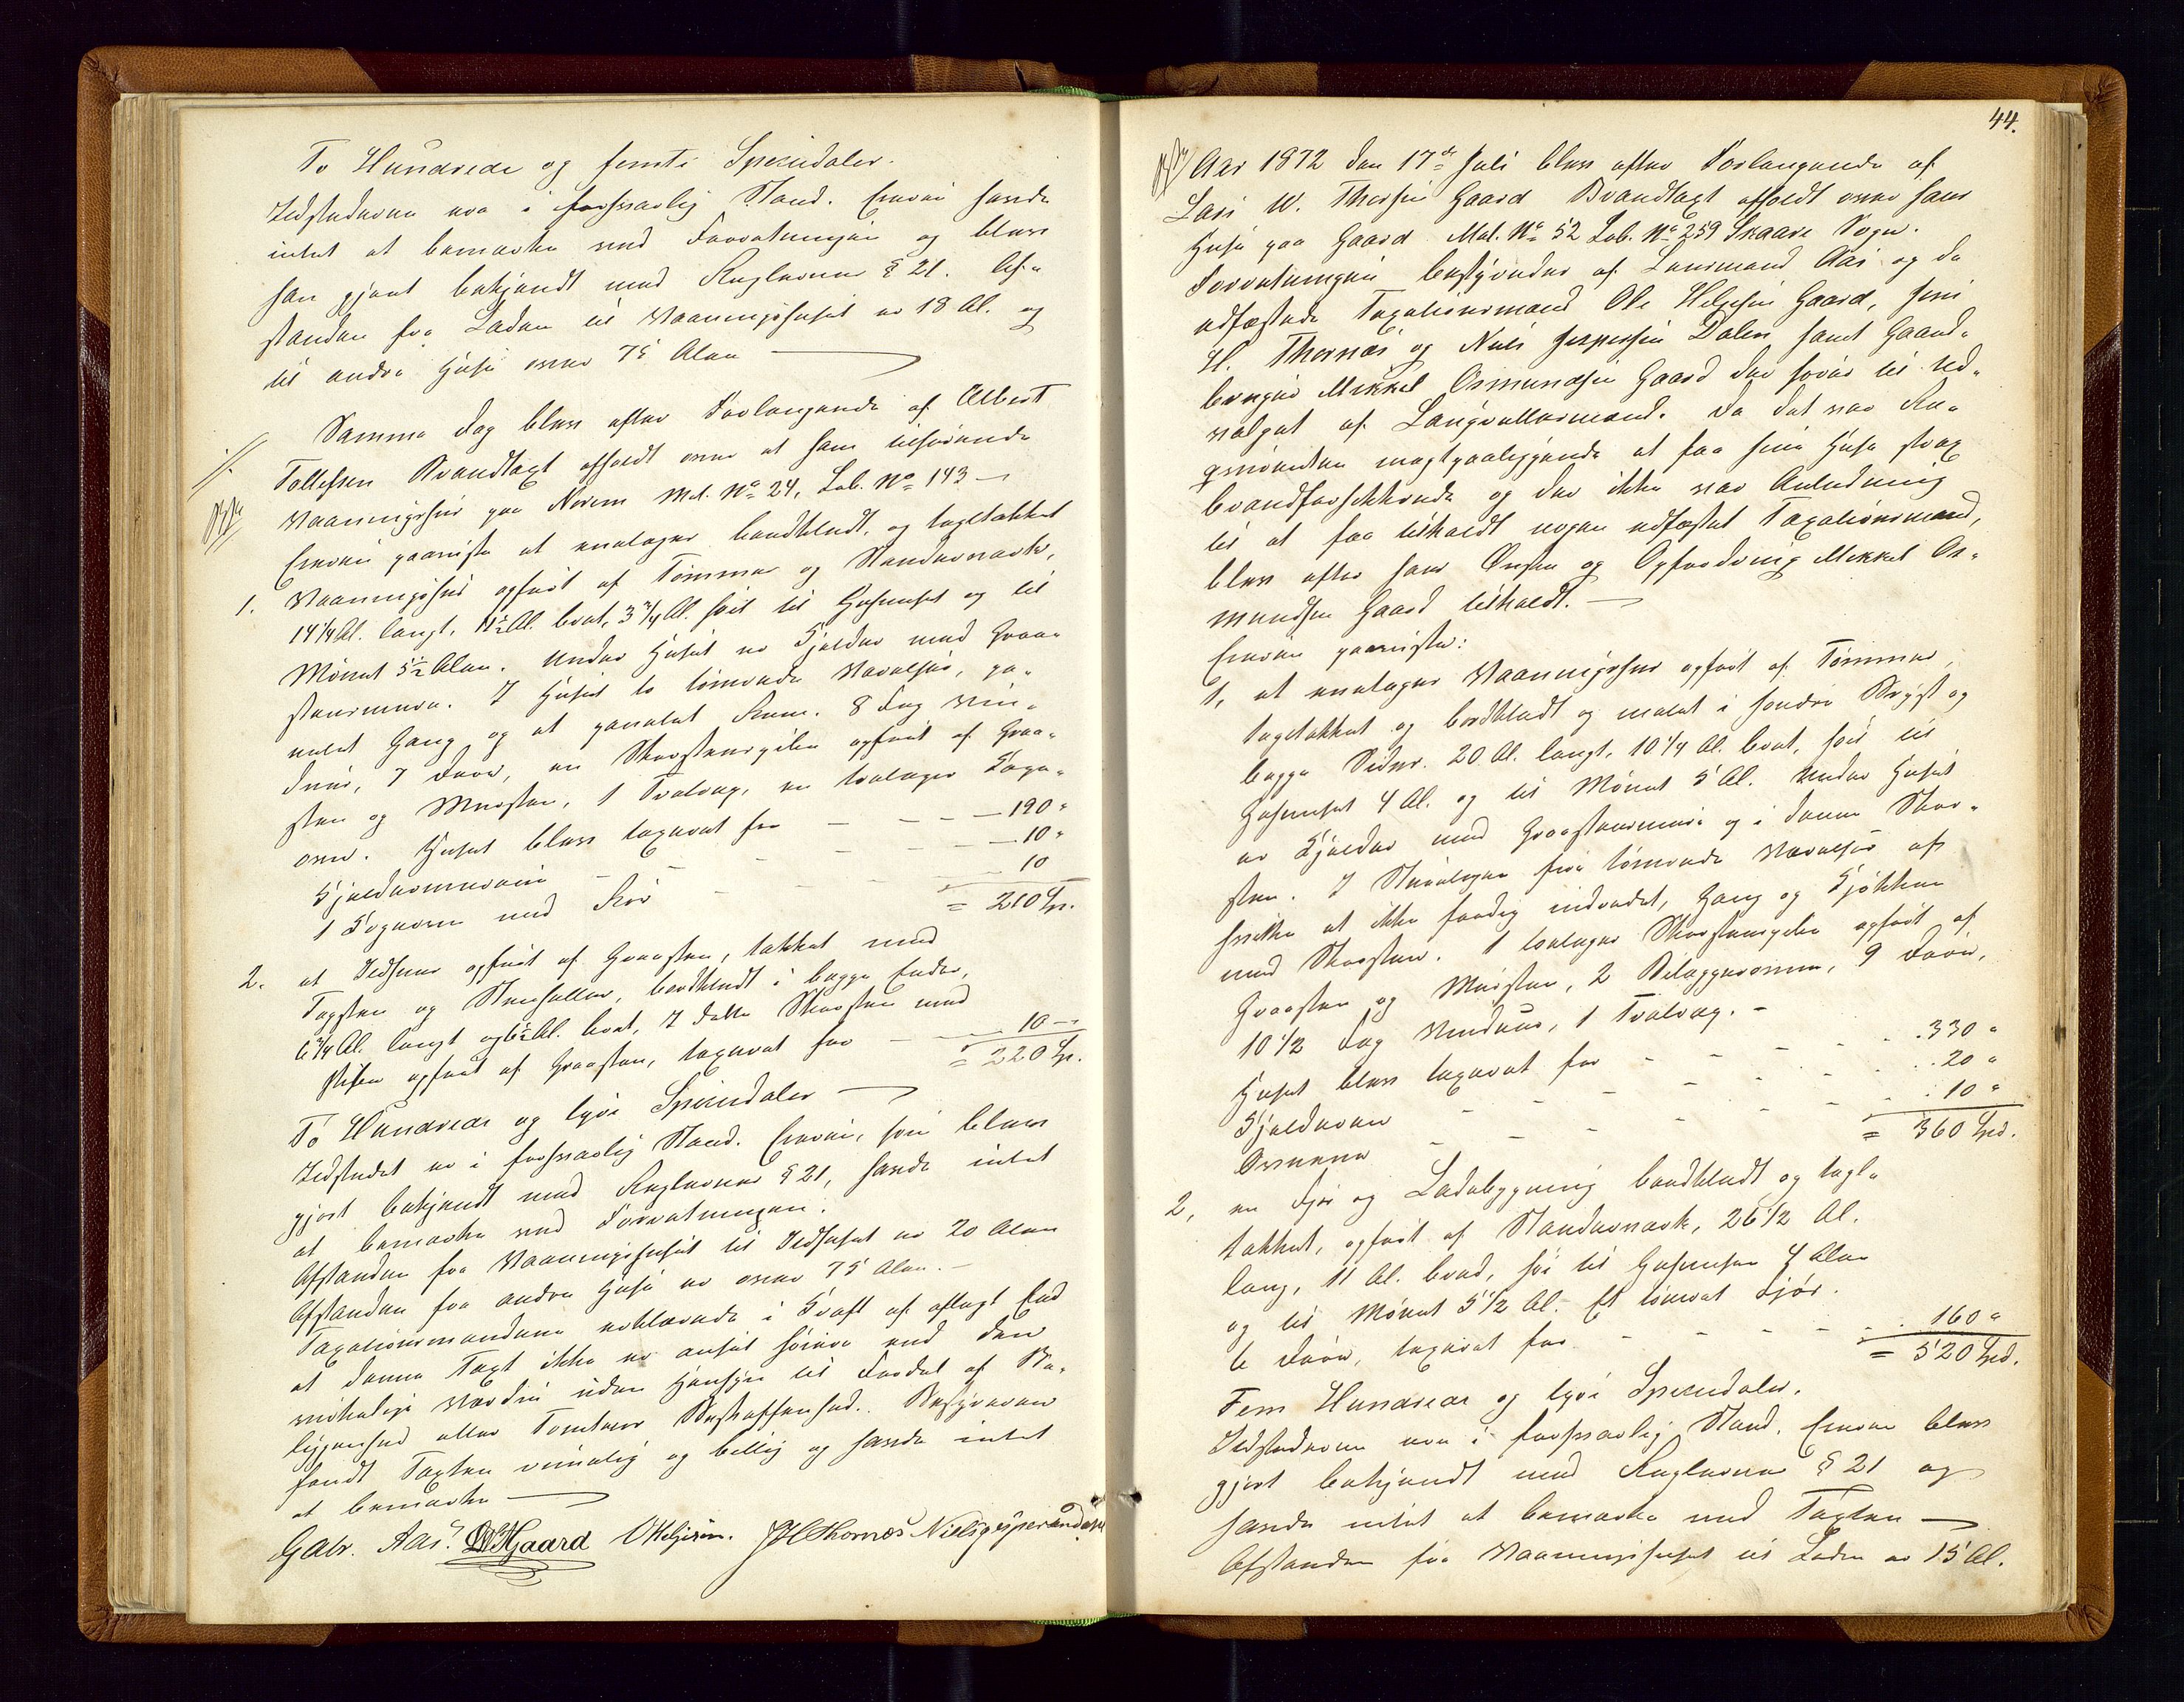 To Hundrede og femti Speciedaler.
Ildstederne ere i forsvarlig Stand. Eieren havde
intet at bemærke ved Forretningen og blev
han gjort bekjendt med Reglernes § 21. Af-
standen fra Laden til Vaaningshuset er 18 Al. og
til andre Huse over 75 Alen
Samme Dag blev efter Forlangende af Albert
Tollefsen Brandtaxt afholdt over et ham tilhørende
Vaaningshus paa Norem Mt. No 24, Lob. No 143
Eieren paaviste et enetages bordklædt, og tagltækket
1. Vaaningshus opført af Tømmer og Standerværk,
14 1/4 Al. langt, 11 1/2 Al. bredt, 3 3/4 Al. høit til Gesimset og til
Mønet 5 1/2 Alen. Under Huset er Kjelder med Graa-
steensmure. I Huset to tømrede Værelser, pa-
nelet Gang og et panelet Rum. 8 Fag Vin-
duer, 7 Døre, en Skorsteenspibe opført af Graa-
sten og Mursten, 1 Bilægger, en toetages Koge-
ovn. Huset blev taxeret for — — — 190 "
Kjeldermuren — — — 10 "
1 Kogeovn med Rør — — — 10
= 210 Sp.
2. et Ildhuus opført af Graasten, tækket med
Tagsten og Steenheller, bordklædt i begge Ender,
6 3/4 Al. langt og 6 1/2 Al. bredt, I dette Skorsten med
Pibe opført af Graasten, taxeret for — 10 —
= 220 Sp.
To Hundrede og tyve Speciedaler
Ildstedet er i forsvarlig Stand. Eieren, som blev
gjort bekjendt med Reglernes § 21, havde intet
at bemærke ved Forretningen.
Afstanden fra Vaaningshuset til Ildhuset er 20 Alen
Afstanden fra andre Huse er over 75 Alen. —
Taxationsmændene erklærede i Kraft af aflagt Eed
at denne Taxt ikke er ansat høiere end den
virkelige Værdie uden Hensyn til Fordel af Be-
liggenhed eller Tomtens Beskaffenhed. Bestyreren
fandt Taxten rimelig og billig og havde intet
at bemærke
Gabr. Aas. OHGaard OHelgesen. JHThornes Niels Jespersen Dalen
44.
Aar 1872 den 17de Juli blev efter Forlangende af
Lars W. Thorsen Gaard Brandtaxt afholdt over hans
Huse paa Gaard Mat. No 52 Lob. No 259 Skaare Sogn.
Forretningen bestyredes af Lensmand Aas og de
edfæstede Taxationsmænd Ole Helgesen Gaard, Jens
H. Thornæs og Niels Jespersen Dalen samt Gaard-
bruger Mikkel Osmundsen Gaard der hører til Ud-
valget af Laugrettesmænd. Da det var Re-
qvirenten magtpaaliggende at faa sine Huse strax
brandforsikkrede og der ikke var Anledning
til at faa tilkaldt nogen edfæstet Taxationsmand,
blev efter hans Ønske og Opfordring Mikkel Os-
mundsen Gaard tilkaldt. —
Eieren paaviste:
1, et enetages Vaaningshus opført af Tømmer,
tagltækket og bordklædt og malet i søndre Bryst og
begge Sider. 20 Al. langt, 10 1/4 Al. bredt, høit til
Gesimset 4 Al. og til Mønet 5 Al. Under Huset
er Kjelder med Graasteensmure og i denne Skor-
sten. I Stuetagen fire tømrede Værelser af
hvilke et ikke færdig indredet, Gang og Kjøkken
med Skorsten. 1 toetages Skorsteenspibe opført af
Graasten og Mursten, 2 Bilæggerovne, 9 Døre,
10 1/2 Fag Vinduer, 1 Bilægger. —
Huset blev taxeret for — — — 330 "
Kjelderen — — — 20 "
Ovnene — — — 10 "
= 360 Spd.
2, en Fjøs og Ladebygning bordklædt og tagl-
tækket, opført af Standerværk, 26 1/2 Al.
lang, 11 Al. bred, høi til Gesimsen 4 Alen
og til Mønet 5 1/2 Al. Et tømret Fjøs.
6 Døre, taxeret for — — — 160 "
= 520 Spd.
Fem Hundrede og tyve Speciedaler.
Ildstederne ere i forsvarlig Stand. Eieren blev
gjort bekjendt med Reglernes § 21 og
havde intet at bemærke ved Taxten —
Afstanden fra Vaaningshuset til Laden er 15 Al.